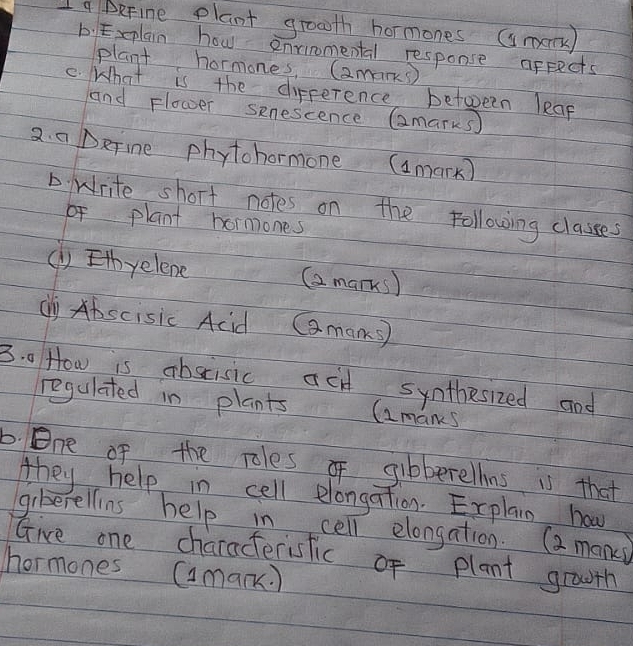 1 a Define plant growth hormones (1 mark)
b. Explain how enviromental response affects
plant hormones. (2marks)
c. What is the difference between leaf
and Flower senescence (2marks)
2.a Define phytohormone (1mark)
b. Write short notes on the Following classes
of plant hormones
(i) Ethyelene (2marks)
(ii) Abscisic Acid (2marks)
3.a How is abscisic acid synthesized and
regulated in plants (2marks
b. One of the roles of gibberellins is that
they help in cell elongation. Explain how
giberellins help in cell elongation. (2 marks)
Give one characteristic of plant growth
hormones (1mark.)